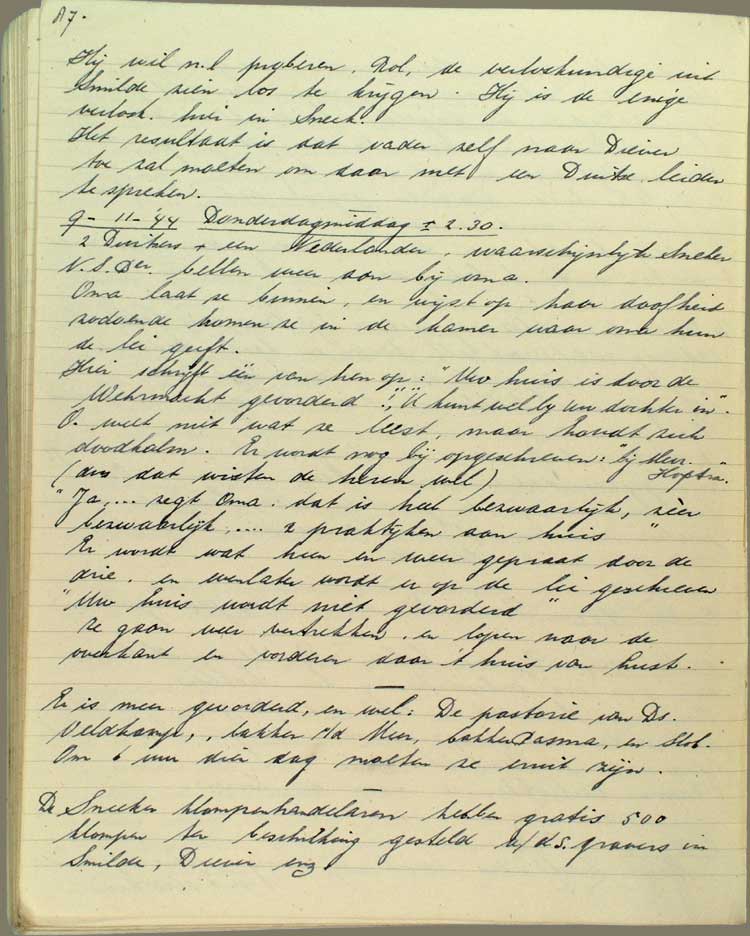 87.
Hij wil n.l. proberen, Dol, de verloskundige uit
Smilde zien los te krijgen. Hij is de enige
verlosk. hier in Sneek.
Het resultaat is dat vader zelf naar Diever
toe zal moeten om daar met een Duitse leider
te spreken.
9-11-'44 Donderdagmiddag ± 2.30.
2 Duitsers + een Nederlander, waarschijnlijk Sneker
N.S.Ber. bellen weer aan bij oma.
Oma laat ze binnen, en wijst op haar doofheid
zodoende komen ze in de kamer waar oma hun
de lei geeft.
Hier schrijft één van hen op: "Uw huis is door de
Wehrmacht gevorderd!", "U kunt wel bij Uw dochter in".
O. weet niet wat ze leest, maar houdt zich
doodkalm. Er wordt nog bij opgeschreven: "bij Mevr.
Hoptra."
(dus dat wisten de heren wel)
"Ja,... zegt Oma. dat is heel bezwaarlijk, zéér
bezwaarlijk,.... 2 praktijken aan huis"
Er wordt wat heen en weer gepraat door de
drie. en even later wordt er op de lei geschreven
"Uw huis wordt niet gevorderd"
ze gaan weer vertrekken. en lopen naar de
overkant en vorderen daar 't huis van
Er is meer gevorderd, en wel: De pastorie van Ds.
Veldkamp, bakker v/d Meer, bakker en Slot.
Om 6 uur dier dag moeten ze eruit zijn.
De Sneeker klompenhandelaren hebben gratis 500
klompen ter beschikking gesteld a/d S. gravers in
Smilde, Diever enz.